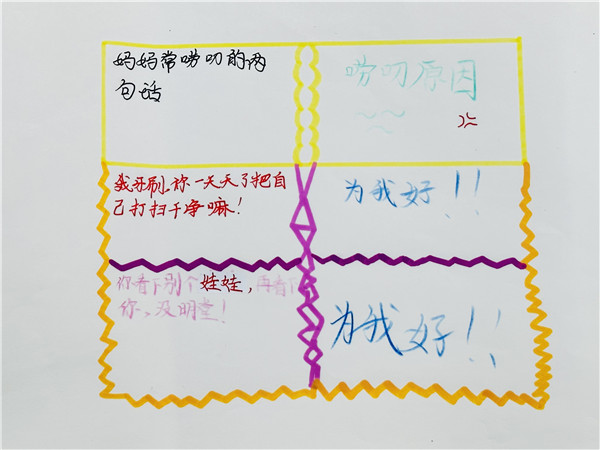 妈妈常唠叨的两
句话
唠叨原因
你一天天了把自
己打扫干净嘛!
为我好!!
你看下别个娃娃,再看
你,没明堂!
为我好!!